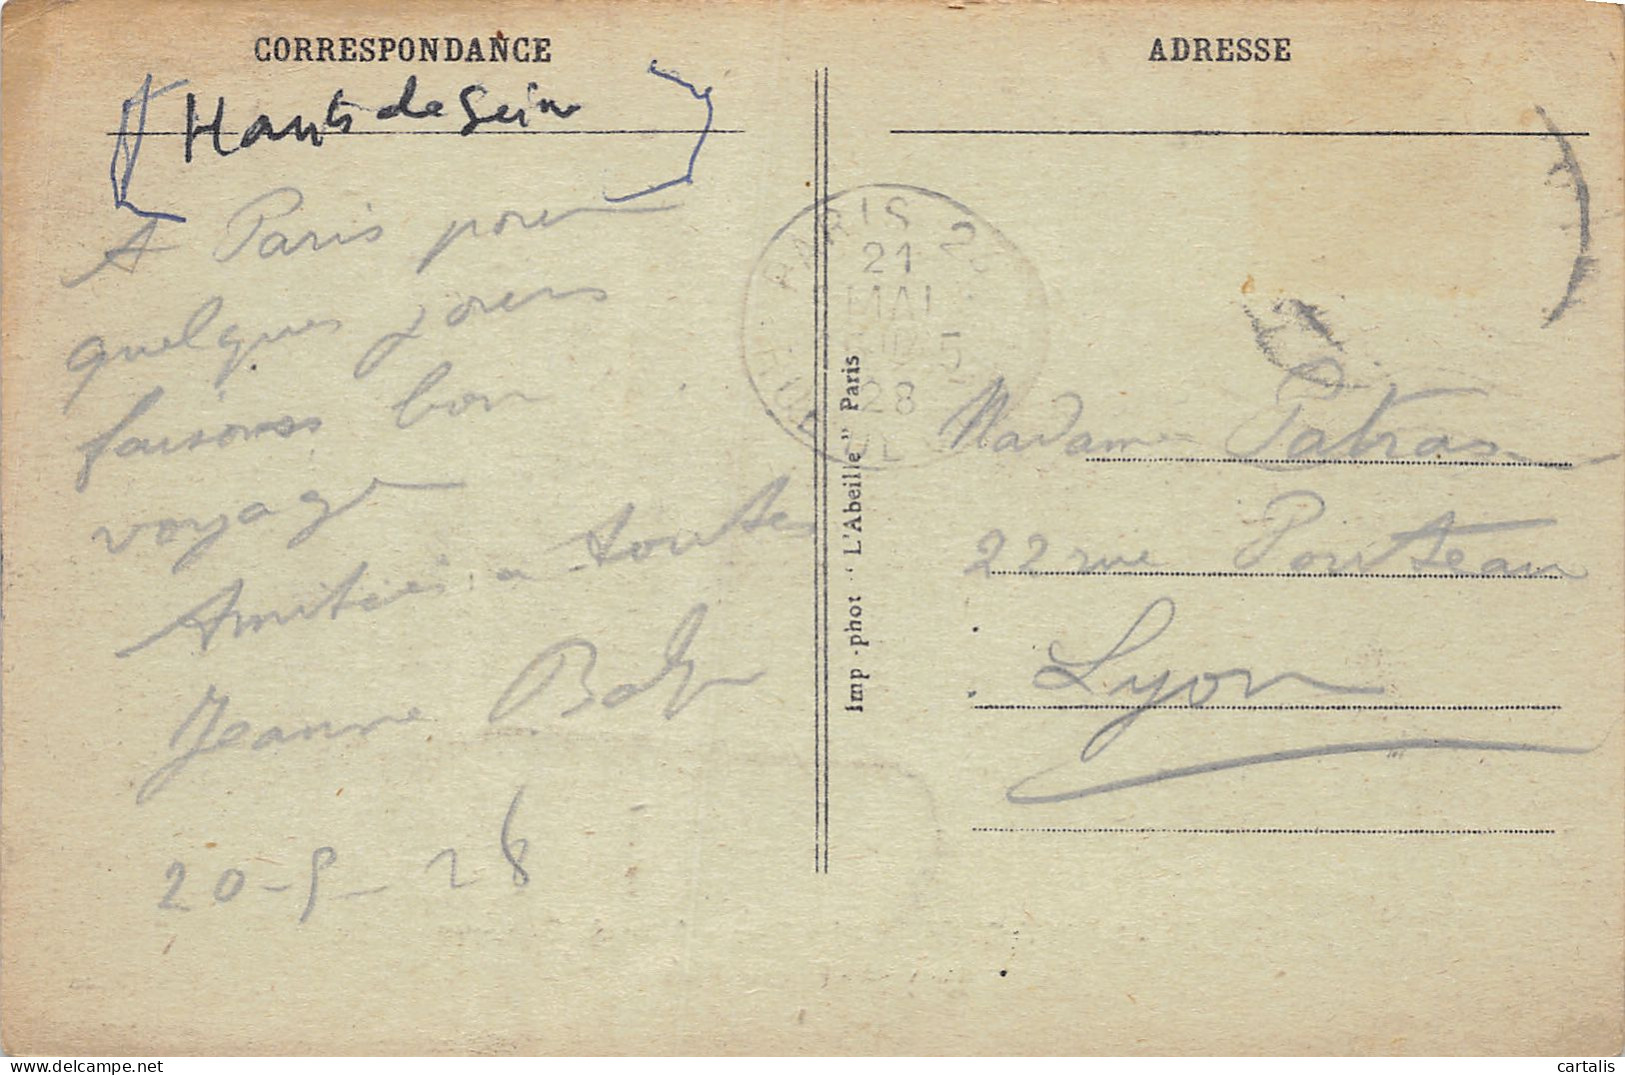 CORRESPONDANCE
Hauts de Seine
A Paris pour
quelques jours
faisons bon
voyage
Amitiés a toutes
Jeanne
20-5-28
PARIS
21
MAI
5
28
Imp.-phot "L'Abeille" Paris
ADRESSE
Madame Patras
22 rue Pouteau
Lyon
cartalis